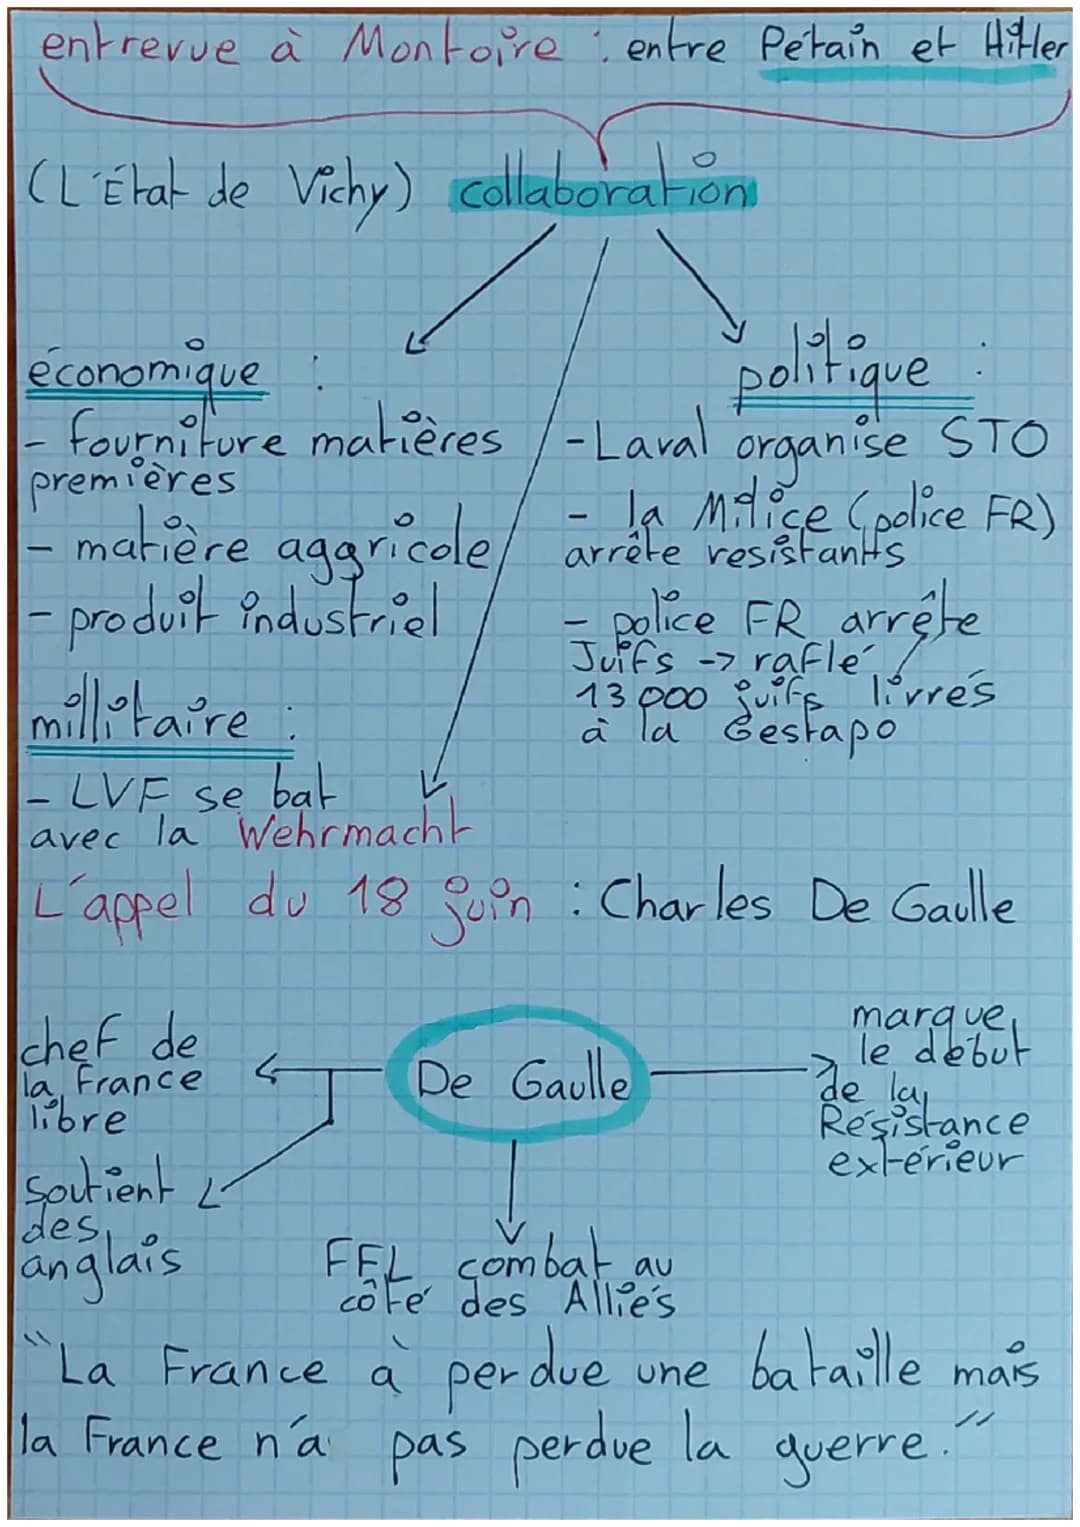 entrevue à Montoire : entre Pétain et Hitler
(L'État de Vichy) collaboration
économique :
- fourniture matières
premières
- matière aggricole
- produit industriel
millitaire :
- LVF se bat
avec la Wehrmacht
politique :
- Laval organise STO
- la Milice (police FR)
arrête resistants
- police FR arrête
Juifs -> raflé
13 000 juifs livrés
à la Gestapo
L'appel du 18 juin : Charles De Gaulle
chef de
la France
libre
soutient
des
anglais
De Gaulle
FFL combat au
côté des Alliés
marque
le début
de la
Résistance
extérieur
"La France à perdue une bataille mais
la France n'a pas perdue la guerre."